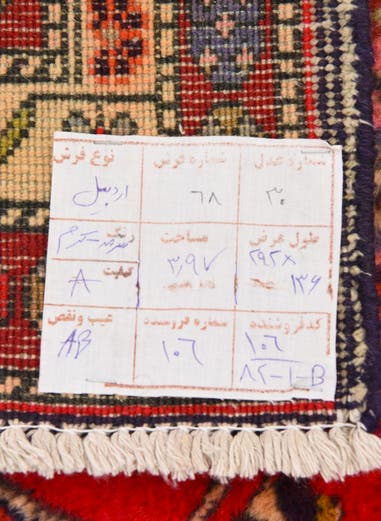 شماره عدل شماره فرش نوع فرش
۳۰ ۶۸ اردبیل
طول عرض مساحت رنگ
۲۹۲×۱۳۶ ۳/۹۷ قرمز-کرم
کیفیت
A
کد فروشنده شماره فروشنده عیب و نقص
۱۰۶ ۱۰۶ AB
۸۲-۱-B